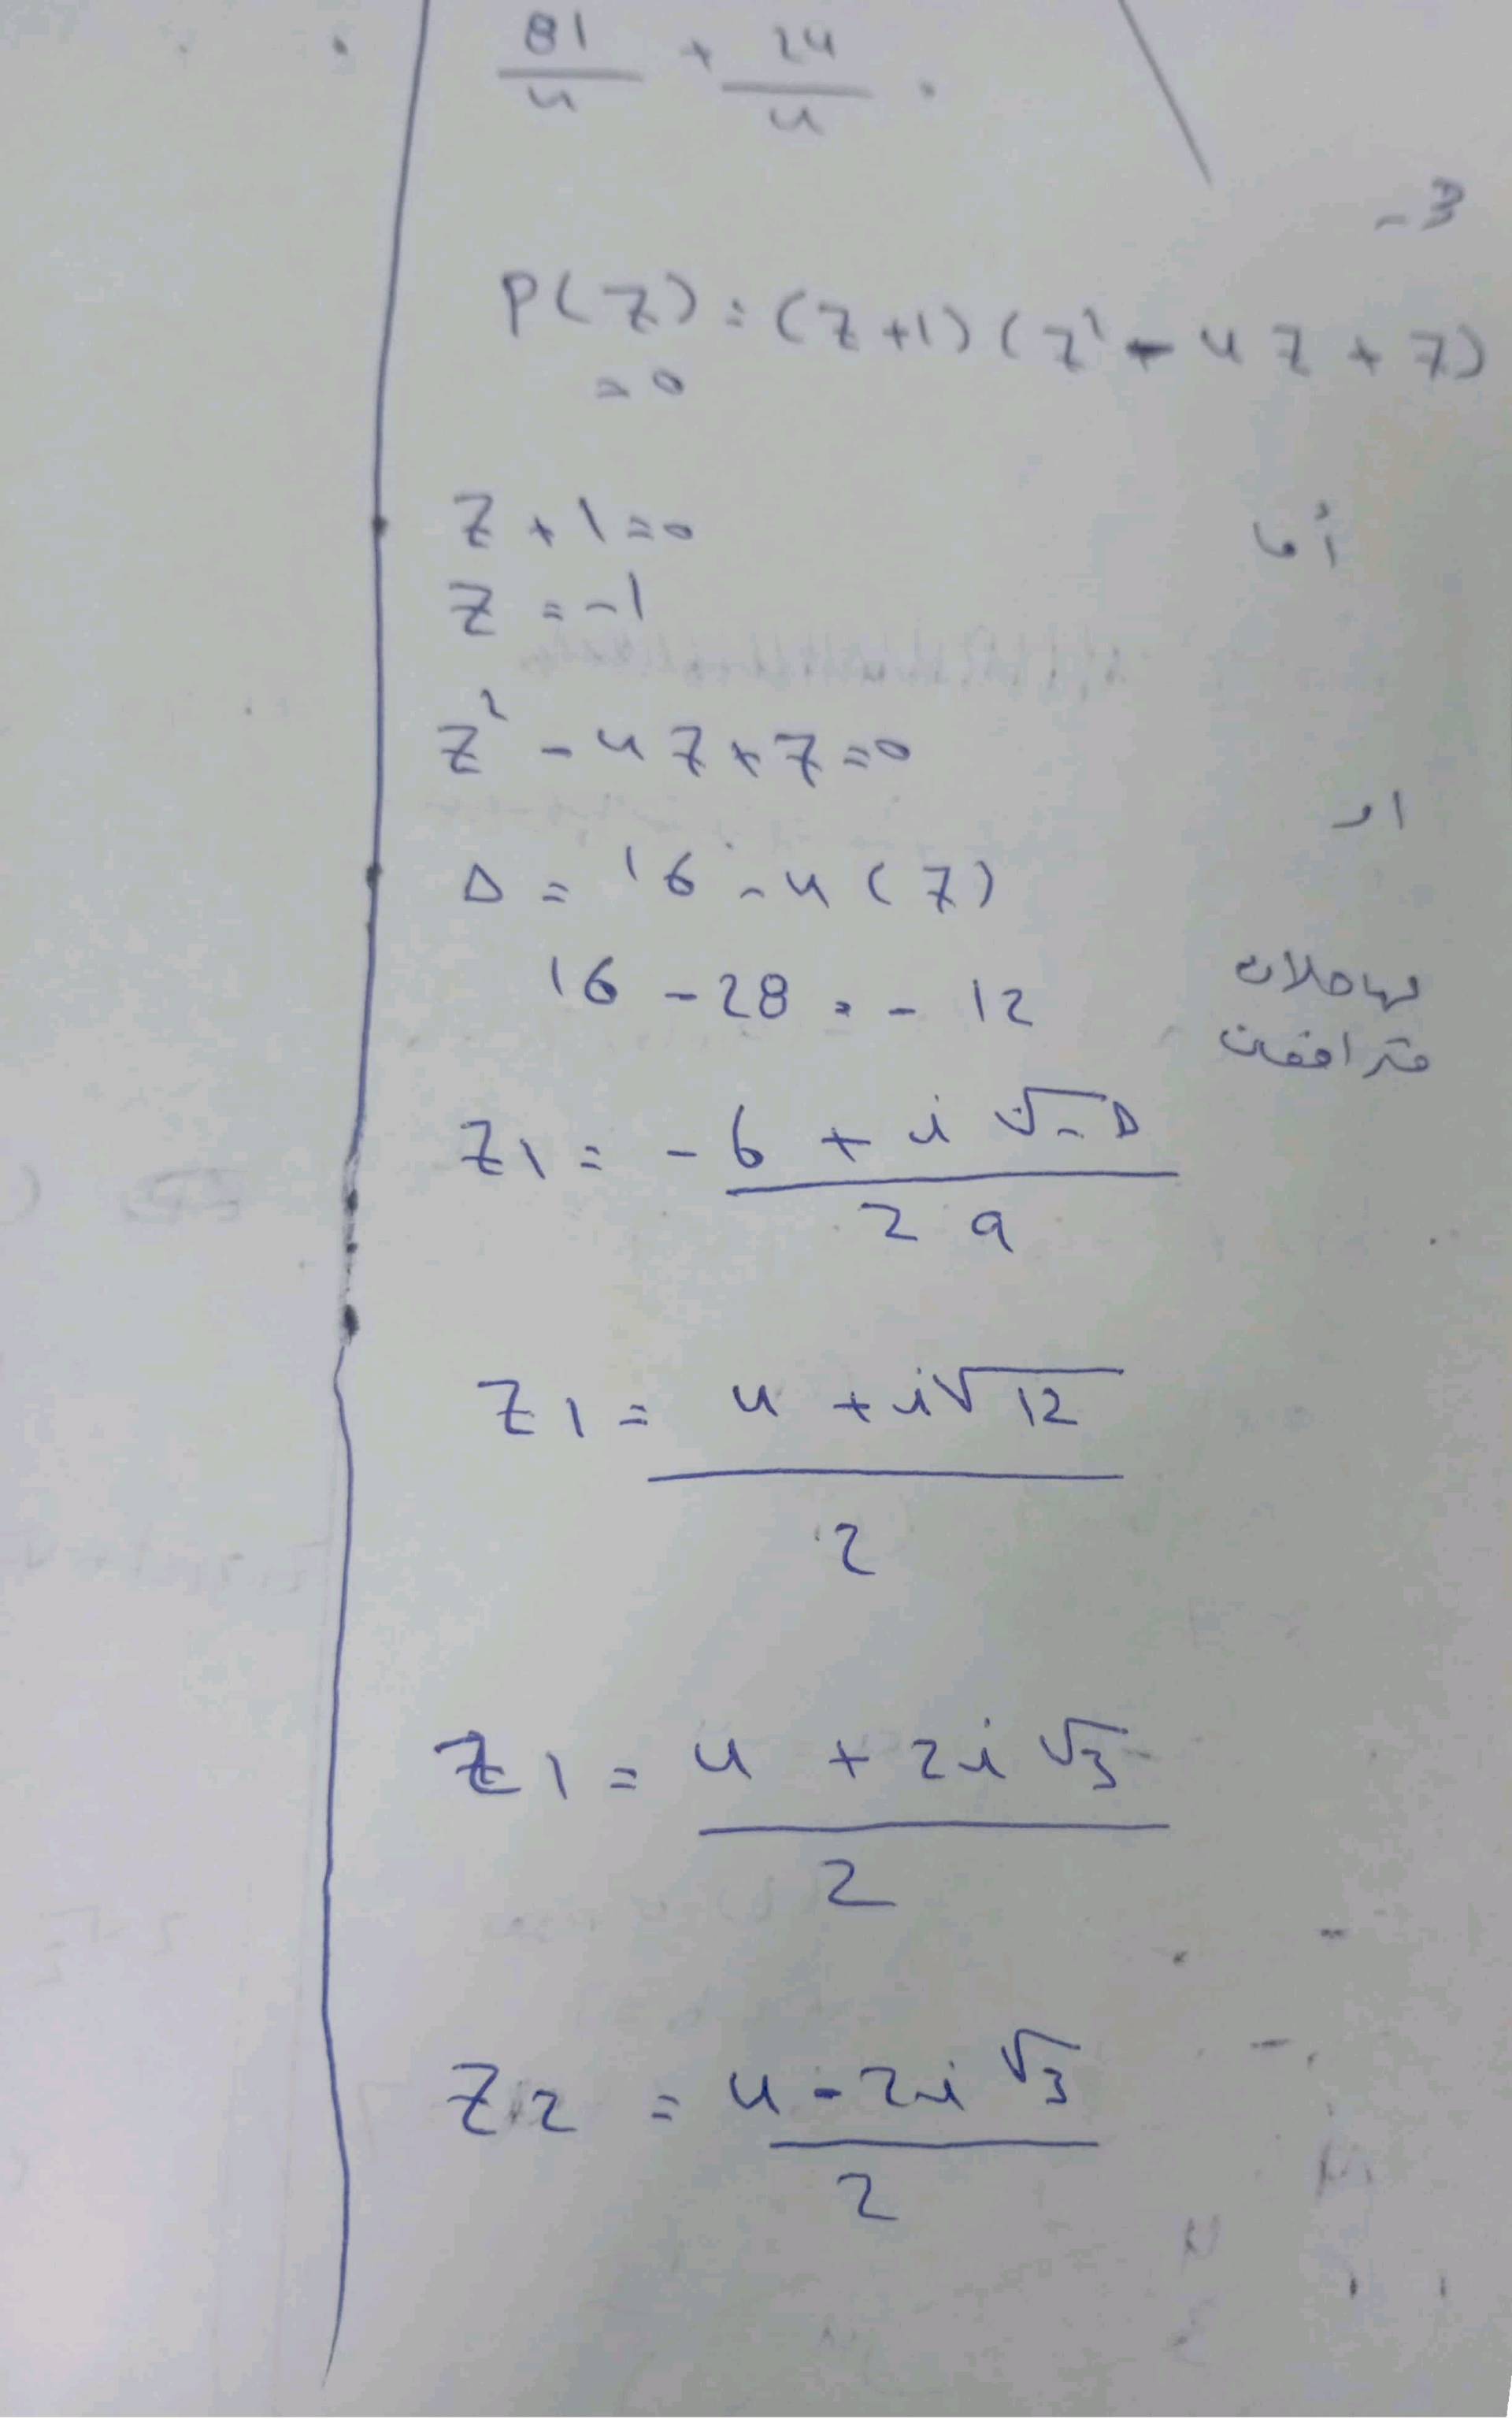 81/4 + 24/4 .
3-
P(Z) = (Z+1)(Z² - 4Z + 7)
= 0
Z + 1 = 0 أما
Z = -1
Z² - 4Z + 7 = 0
او
Δ = 16 - 4(7)
16 - 28 = - 12
مترافقان
Z1 = -b + i √-Δ / 2a
Z1 = 4 + i√12 / 2
Z1 = 4 + 2i √3 / 2
Z2 = 4 - 2i √3 / 2